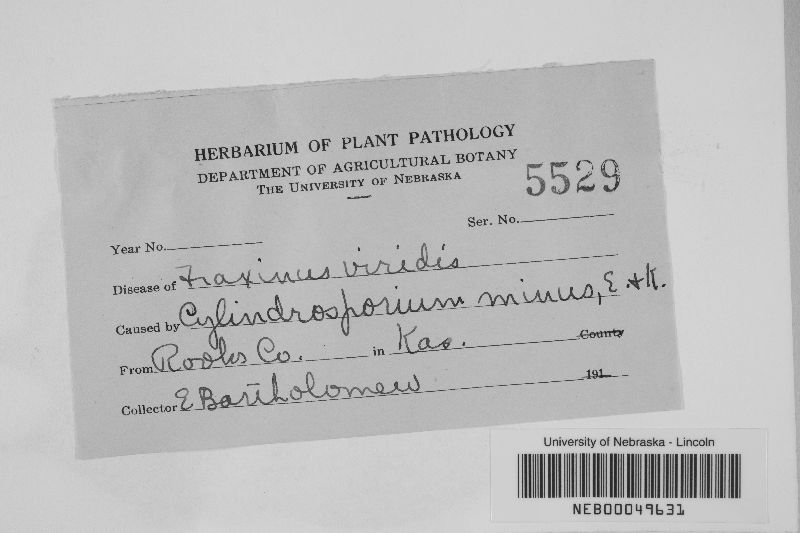 HERBARIUM OF PLANT PATHOLOGY
DEPARTMENT OF AGRICULTURAL BOTANY
THE UNIVERSITY OF NEBRASKA
5529
Year No. Ser. No.
Disease of Fraxinus viridis
Caused by Cylindrosporium minus, E & K.
From Rooks Co. in Kas. County
Collector E Bartholomew 191
University of Nebraska - Lincoln
NEB00049631